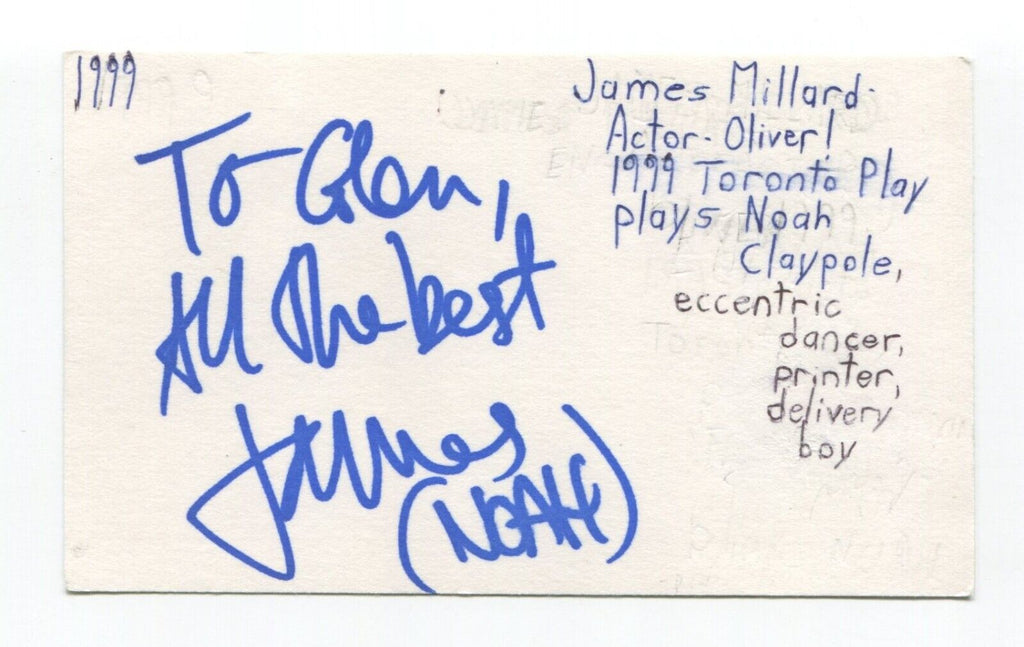 1999
To Glen,
All The best
James
(NOAH)
James Millard-
Actor-Oliver!
1999 Toronto Play
plays Noah
Claypole,
eccentric
dancer,
printer,
delivery
boy